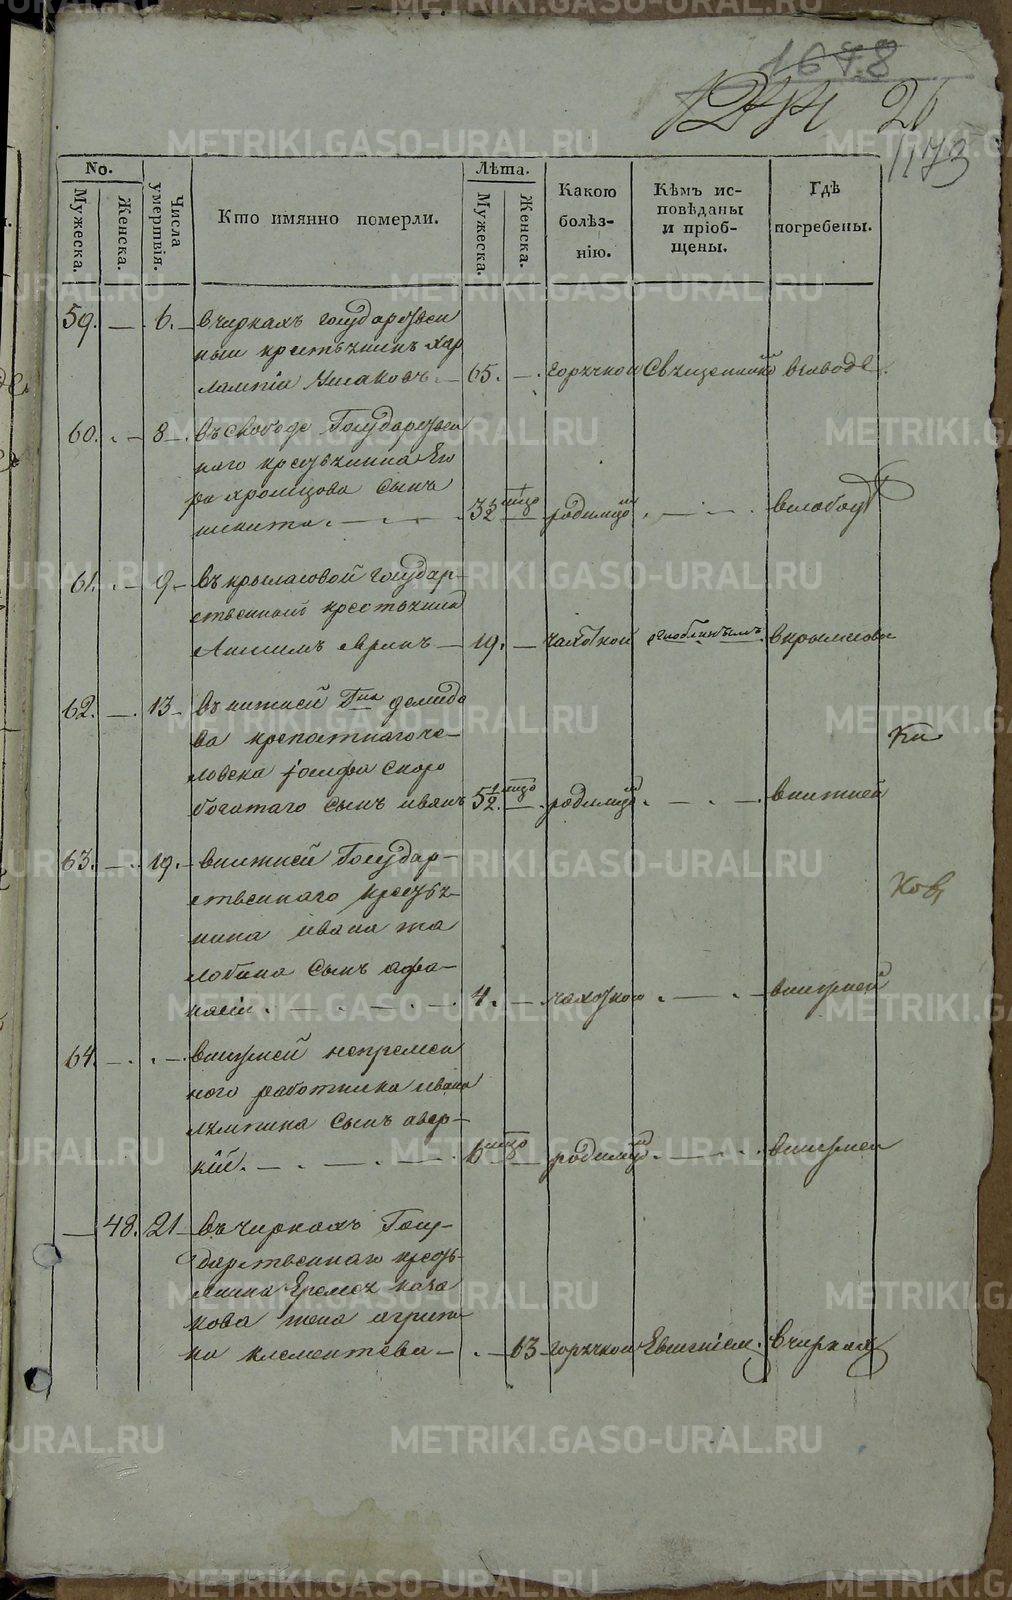 1678
26
1173
No.
Лѣта.
Мужеска.
Женска.
Числа умертвія.
Кто имянно померли.
Мужеска.
Женска.
Какою болѣз-
нію.
Кѣмъ ис-
повѣданы
и пріоб-
щены.
Гдѣ
погребены.
59. — 6. — вчиркахъ государствен
ный крестьянинъ Хар
лампій Ушаковъ. — 65. — горячкой Священник
60. — 8 — въ слободе Государствен
наго крестьянина Его
ра Хромцова сынъ
никита. — 3 1/2 родимцо вслобод
61. — 9 — въ крыласовой государ-
ственный крестьянинъ
— 19. — чахоткой вкрыласово
62. — 13 — въ нижней Гна демидо
ва крепостнаго че-
ловека Іосифа Скоро
богатаго сынъ иванъ 5 1/2 родимцо внижней
Ки
63. — 19. — внижней Государ-
ственнаго крестья-
нина ивана та
лобина сынъ афа-
насій. — 4. — чахоткою внижней
Ков
64. — внижней непремен
ного работника ивана
сынъ авер-
кій. — 6 родимцо внижней
— 48. 21 — въ чиркахъ Госу-
дарственнаго кресть-
янина Еремея каза
кова жена агрипи
на клементева — 63 горячкой Евгеніем. вчирках
METRIKI.GASO-URAL.RU